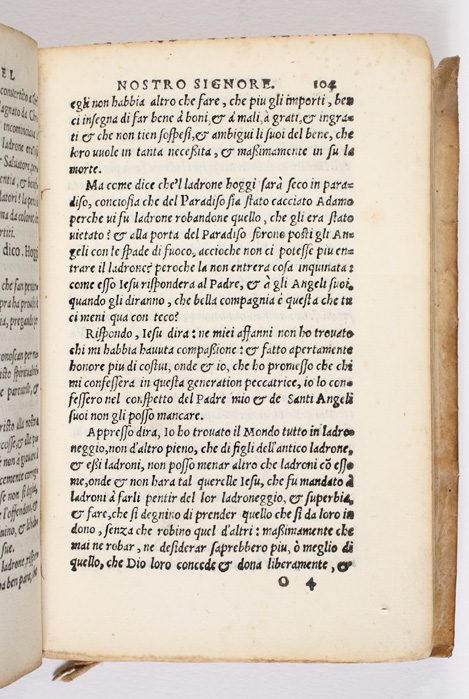 EL
NOSTRO SIGNORE. 104
egli non habbia altro che fare, che piu gli importi, ben
ci insegna di far bene à boni & à mali, à grati, & ingra-
ti & che non tien sospesi, & ambigui li suoi del bene, che
loro uuole in tanta necessita, & massimamente in su la
morte.
Ma come dice che'l ladrone hoggi sarà seco in para-
diso, conciosia che del Paradiso sia stato cacciato Adamo
perche ui fu ladrone robandone quello, che gli era stato
uietato? & alla porta del Paradiso forono posti gli An-
geli con le spade di fuoco, accioche non ci potesse piu en-
trare il ladrone? peroche la non entrera cosa inquinata:
come esso Iesu rispondera al Padre, & à gli Angeli suoi,
quando gli diranno, che bella compagnia è questa che tu
ci meni qua con teco?
Rispondo, Iesu dira: ne miei affanni non ho trouato
chi mi habbia hauuta compassione: & fatto apertamente
honore piu di costui, onde & io, che ho promesso che chi
mi confessera in questa generation peccatrice, io lo con-
fessero nel conspetto del Padre mio & de Santi Angeli
suoi non gli posso mancare.
Appresso dira, Io ho trouato il Mondo tutto in ladro-
neggio, non d'altro pieno, che di figli dell'antico ladrone,
& essi ladroni, non posso menar altro che ladroni cō esso
me, onde & non hara tal querelle Iesu, che fu mandato à
ladroni à farli pentir del lor ladroneggio, & superbia,
& fare, che si degnino di prender quello che si da loro in
dono, senza che robino quel d'altri: massimamente che
mai ne robar, ne desiderar saprebbero piu, ò meglio di
quello, che Dio loro concede & dona liberamente, &
O 4